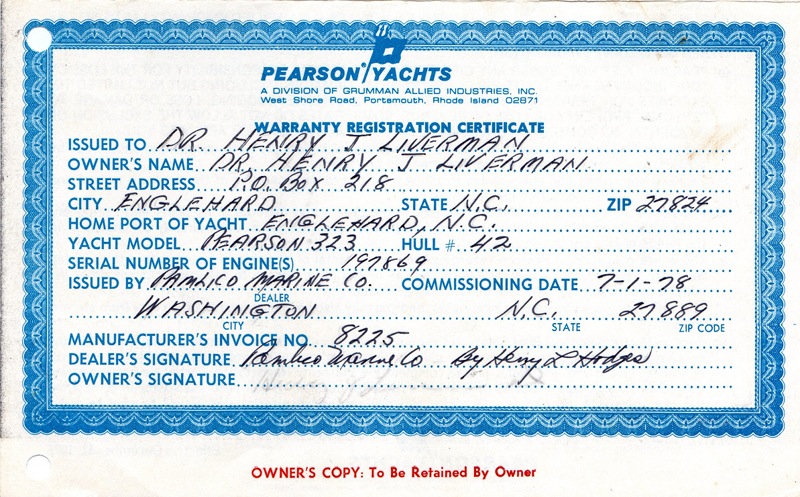 PEARSON YACHTS
A DIVISION OF GRUMMAN ALLIED INDUSTRIES, INC.
West Shore Road, Portsmouth, Rhode Island 02871
WARRANTY REGISTRATION CERTIFICATE
ISSUED TO DR. HENRY J LIVERMAN
OWNER'S NAME DR. HENRY J LIVERMAN
STREET ADDRESS P.O. BOX 218
CITY ENGLEHARD STATE N.C. ZIP 27824
HOME PORT OF YACHT ENGLEHARD, N.C.
YACHT MODEL PEARSON 323 HULL # 42
SERIAL NUMBER OF ENGINE(S) 197869
ISSUED BY PAMLICO MARINE CO. COMMISSIONING DATE 7-1-78
DEALER
WASHINGTON N.C. 27889
CITY STATE ZIP CODE
MANUFACTURER'S INVOICE NO. 8225
DEALER'S SIGNATURE Pamlico Marine Co By Henry L Hodges
OWNER'S SIGNATURE
OWNER'S COPY: To Be Retained By Owner